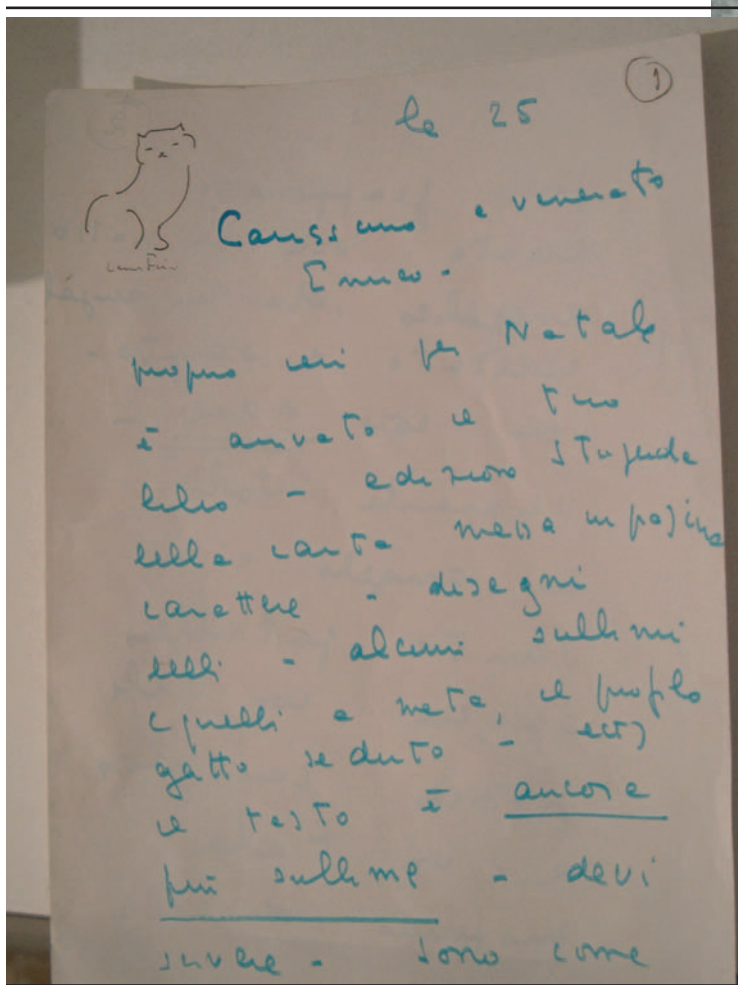 1
le 25
Carissimo e venerato
Enrico -
proprio ieri per Natale
è arrivato il tuo
libro - edizione stupenda
bella carta messa in pagina
carattere - disegni
belli - alcuni sublimi
quelli a metà, il profilo
gatto seduto - ecc)
il testo è ancora
più sublime - devi
scrivere - sono come